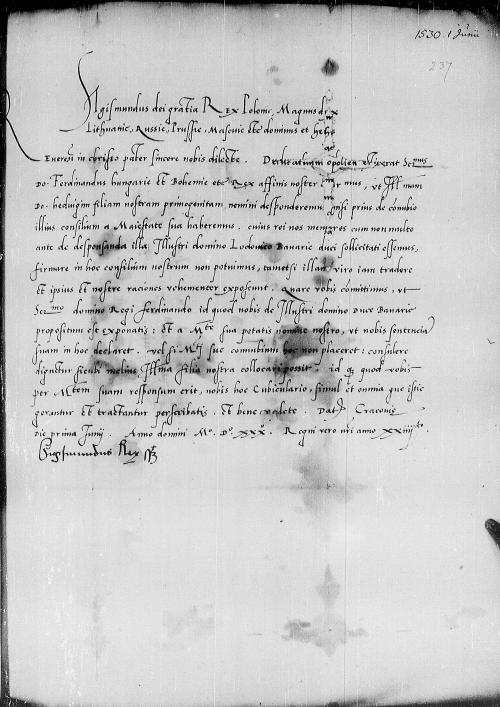 1530. 1 Junii
237
Sigismundus dei gratia Rex Polonie, Magnus dux
Lithuanie, Russie, Prussie, Masovie etc dominus et heres
Reverende in christo pater sincere nobis dilecte. opolica Ser͞mus
Do. Ferdinandus hungarie et Bohemie etc Rex affinis noster mus, ut Ill mam
Do. heduigim filiam nostram primogenitam nemini desponderemus nisi prius de conubio
illius consilium a Maiestate sua haberemus. cuius rei nos memores cum non multo
ante de desponsanda illa Illustri domino Lodovico Bavarie duci sollicitati essemus,
firmare in hoc consilium nostrum non potuimus, tametsi illam viro iam tradere
et ipsius et nostre raciones vehementer exposcunt. Quare vobis comittimus, ut
Ser͞mo domino Regi Ferdinando id quod nobis de Illustri domino Duce Bavarie
propositum est exponatis: et a M͞te sua petatis nomine nostro, ut nobis sentencia͞
suam in hoc declaret. vel si M͞ti sue connubium hoc non placeret: consulere
dignetur sicubi melius Ill͞ma filia nostra collocari possit. id q͞ quod vobis
per M͞tem suam responsum erit, nobis hoc Cubiculario, simul et omnia que istic
gerantur et tractantur perscribatis. Et bene valete. Dat͞ Cracovie
Die prima Junij. Anno domini M͞o. D͞o. XXX͞o. Regni vero n͞ri anno XXiiij͞to.
Sigismundus Rex s͞s͞